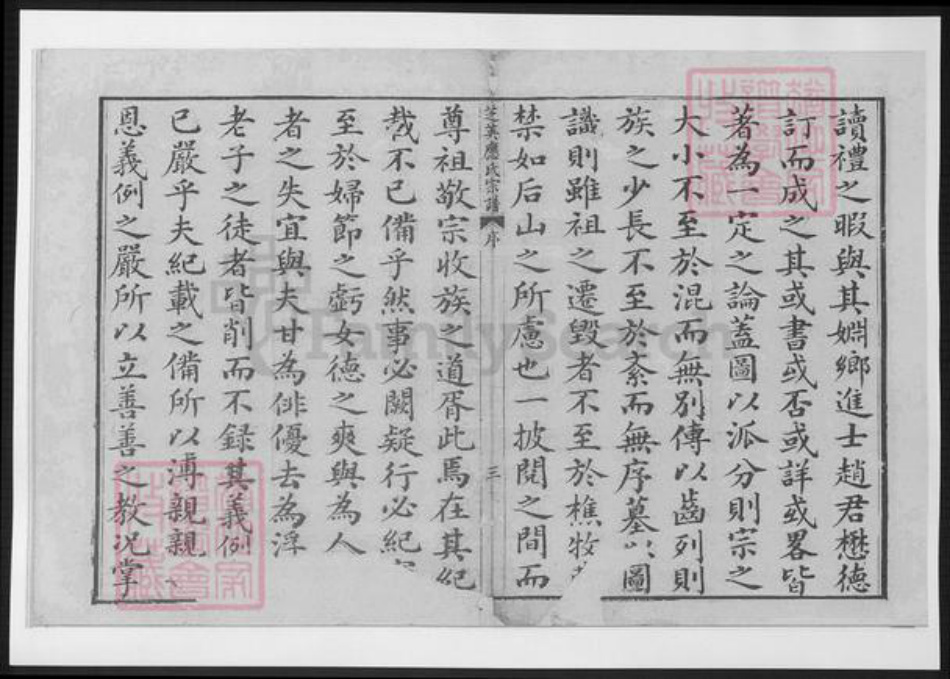 讀禮之暇與其婣鄉進士趙君懋德
訂而成之其或書或否或詳或畧皆
著為一定之論蓋圖以派分則宗之
大小不至於混而無別傳以齒列則
族之少長不至於紊而無序墓以圖
識則雖祖之遷毀者不至於樵牧
禁如后山之所慮也一披閱之間而
芝英應氏宗譜 序 三
尊祖敬宗收族之道胥此焉在其紀
載不已備乎然事必闕疑行必紀
至於婦節之虧女德之爽與為人
者之失宜與夫甘為俳優去為浮
老子之徒者皆削而不録其義例
已嚴乎夫紀載之備所以溥親親
恩義例之嚴所以立善善之教況掌
FamilySearch